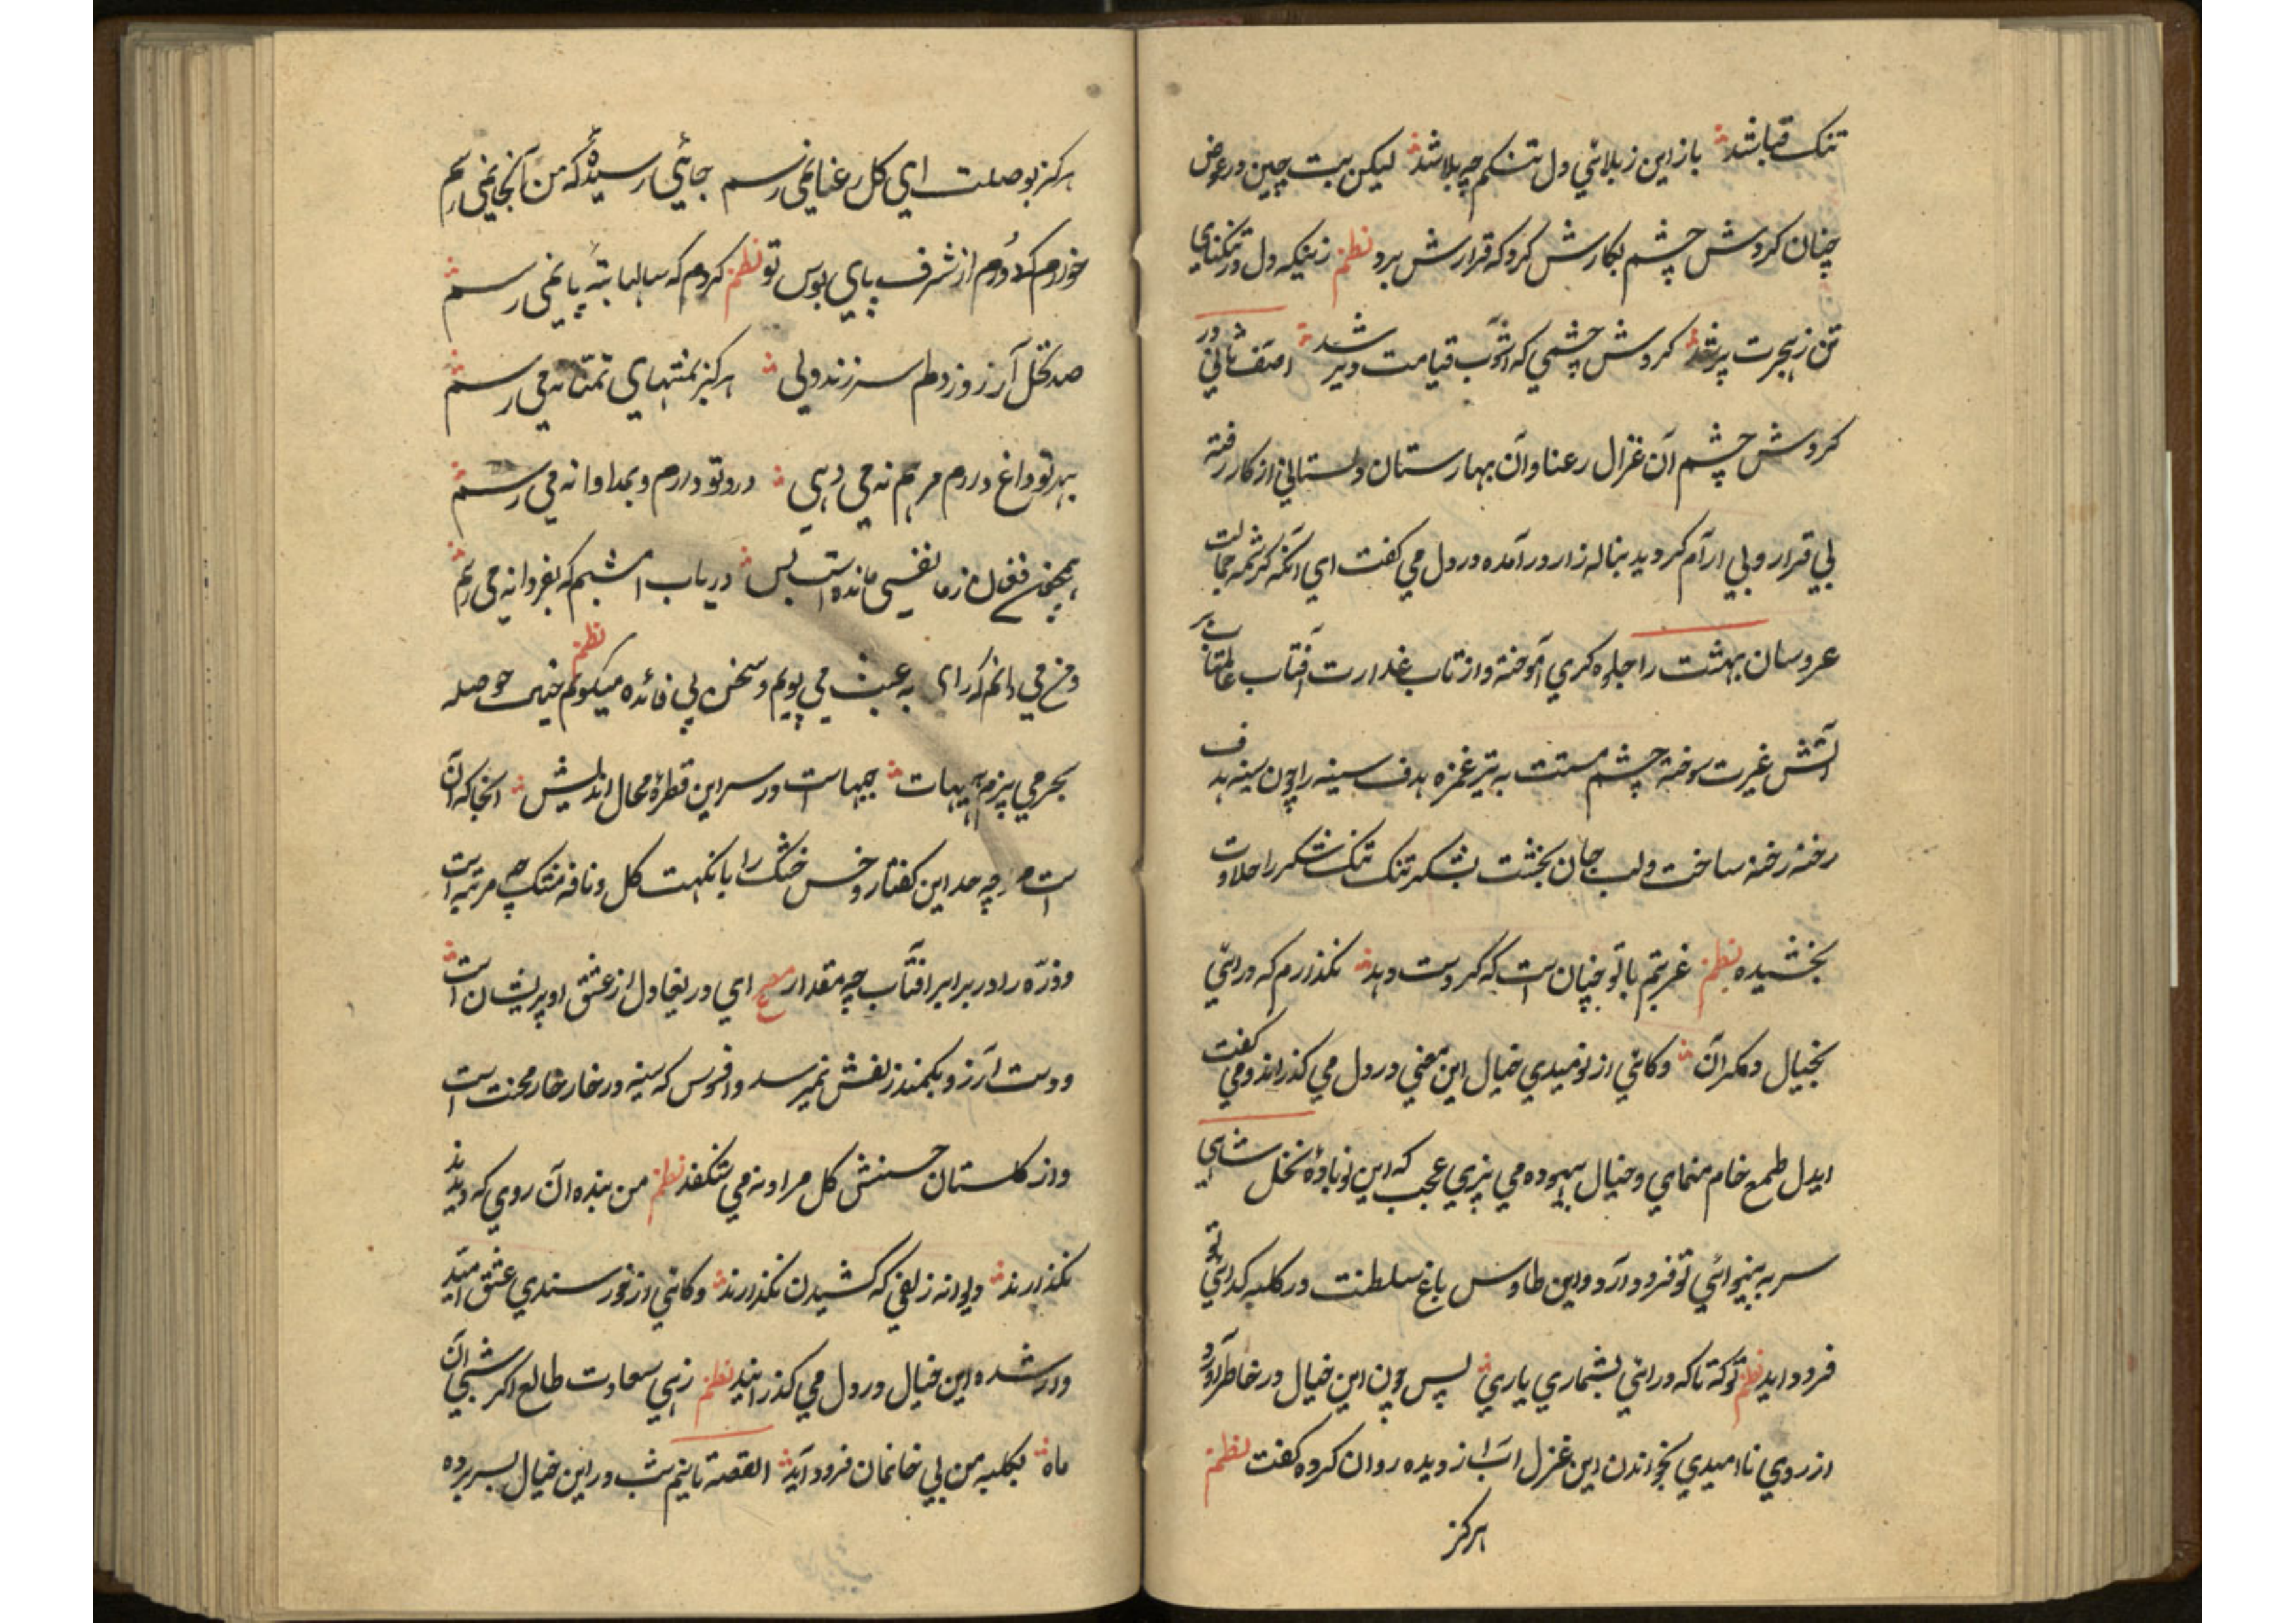 تنک قباشد باز این ز بلاشی دل تنکم چه بلاشد لیکن بت چین در عوض
چنان کردش چشم بکارش کرد که قرارش برد نظم زینکه دل در تنکنای
تن ز هجرت پر شد کردش چشمی که آشوب قیامت دیر شد اصف ثانی در
کردش چشم آن غزال رعنا و آن بهارستان دلستانی از کار رفته
بی قرار و بی ارآم کردید بناله زار در آمده در دل می کفت ای آنکه کرشمه جمالت
عروسان بهشت را جلوه کری آموخته و از تاب عذارت آفتاب عالمتاب بر
آتش غیرت سوخته چشم مستت به تیر غمزه هدف سینه را چون سینه هدف
رخنه رخنه ساخت و لب جان بخشت بشکر تنک تنک شکر را حلاوت
بخشیده نظم غرتم با تو چنان است که کر دست دهد نکذارم که در ائی
بخیال دکران و کاهی از نومیدی خیال این معنی در دل می کذراند و می کفت
ایدل طمع خام منمای و خیال بیهوده می پزی عجب که این نوباوهٔ نخل شاهی
سر به بینوائی تو فرود آرد و این طاوس باغ سلطنت در کلبه کدائی تو
فرود اید نظم تو که تا که در ائی بشماری یاری پس چون این خیال در خاطر آورد
از روی ناامیدی بخواندن این غزل اب از دیده روان کرده کفت نظم
هرکز
هرکز بوصلت ای کل رعنا نمی رسم جائی رسیدهٔ که من آنجا نمی رسم
خوردم که دورم از شرف پای بوس تو نظم کردم که سالها بتهٔ پا نمی رسم
صد نخل آرزو ز دلم سر زند ولی هرکز بمنتهای تمنا نه می رسم
بهر تو داغ دردم مرهم نه می دهی درد تو دارم و بمداوا نه می رسم
همچون فغان ز ما نفسی مانده است بس دریاب امشبم که بفردا نه می رسم
و من می دانم که راه به عبث می پویم و سخن بی فائده میکویم نظم خیال حوصله
بحر می پزم هیهات چیهاست در سر این قطرهٔ محال اندیش انجا که آن
است چه حد این کفتار و خس خشک را با نکهت کل و نافه مشک چه مرتبه است
و ذره را در برابر افتاب چه مقدار مصرع ای دریغا دل از عشق او پریشان است
و دست آرزو بکمند زلفش نمیرسد و افسوس که سینه در خار خار محنت است
و از کلستان حسنش کل مراد نه می شکفد نظم من بنده آن روی که دیدند
نکذارند دیوانه زلفی که کشیدن نکذارند و کاهی از خورسندی عشق امید
وار شده این خیال در دل می کذرانید نظم زهی سعادت طالع اکر شبی آن
ماه بکلبه من بی خانمان فرود آید القصه تا نیم شب در این خیال بسر برده